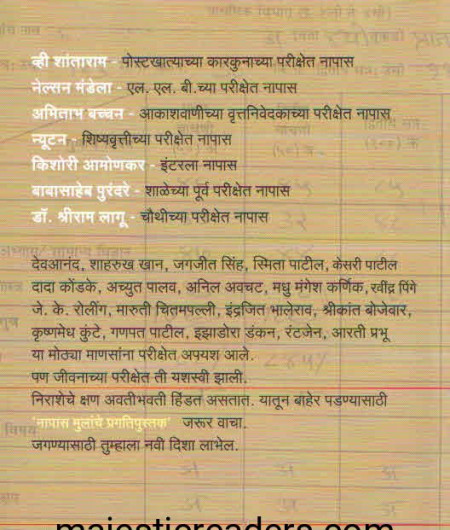 व्ही शांताराम - पोस्टखात्याच्या कारकुनाच्या परीक्षेत नापास
नेल्सन मंडेला - एल. एल. बी.च्या परीक्षेत नापास
अमिताभ बच्चन - आकाशवाणीच्या वृत्तनिवेदकाच्या परीक्षेत नापास
न्यूटन - शिष्यवृत्तीच्या परीक्षेत नापास
किशोरी आमोणकर - इंटरला नापास
बाबासाहेब पुरंदरे - शाळेच्या पूर्व परीक्षेत नापास
डॉ. श्रीराम लागू - चौथीच्या परीक्षेत नापास
देवआनंद, शाहरुख खान, जगजीत सिंह, स्मिता पाटील, केसरी पाटील
दादा कोंडके, अच्युत पालव, अनिल अवचट, मधु मंगेश कर्णिक, रवींद्र पिंगे
जे. के. रोलींग, मारुती चितमपल्ली, इंद्रजित भालेराव, श्रीकांत बोजेवार,
कृष्णमेध कुंटे, गणपत पाटील, इझाडोरा डंकन, रंटजेन, आरती प्रभू
या मोठ्या माणसांना परीक्षेत अपयश आले.
पण जीवनाच्या परीक्षेत ती यशस्वी झाली.
निराशेचे क्षण अवतीभवती हिंडत असतात. यातून बाहेर पडण्यासाठी
'नापास मुलांचे प्रगतिपुस्तक' जरूर वाचा.
जगण्यासाठी तुम्हाला नवी दिशा लाभेल.
majesticreaders.com